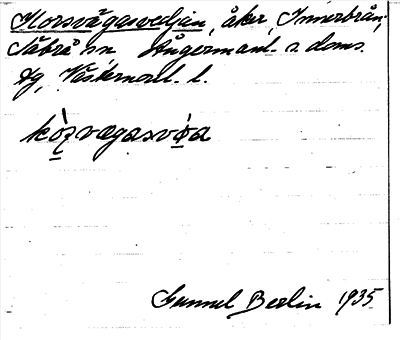 Korsvägasvedjan, åker, Innerbrån,
Säbrå sn Ångermanl. s. doms.
sg, Västernorrl. l.
Gunnel Berlin 1935